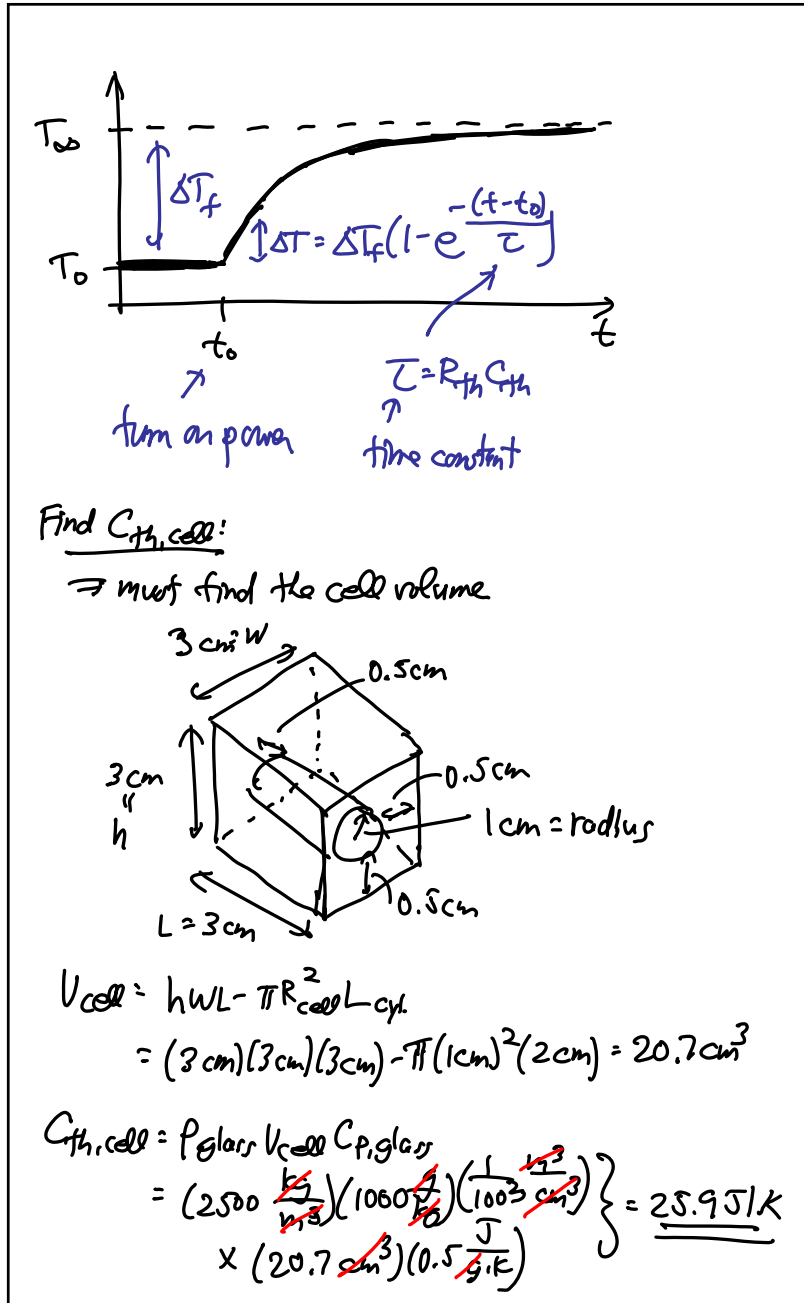 T∞
ΔT_f
ΔT = ΔT_f(1 - e^(-(t-t₀)/τ))
T₀
t₀
t
τ = R_th C_th
turn on power
time constant
Find C_th,cell:
⇒ must find the cell volume
3 cm = W
0.5cm
3 cm = h
0.5cm
1 cm = radius
0.5cm
L = 3 cm
V_cell = hWL - πR²_cell L_cyl.
= (3 cm)(3 cm)(3 cm) - π(1 cm)²(2 cm) = 20.7 cm³
C_th,cell = ρ_glass V_cell C_p,glass
= (2500 kg/m³)(1000 g/kg)(1/100³ m³/cm³)
× (20.7 cm³)(0.5 J/g·K) } = 25.9 J/K